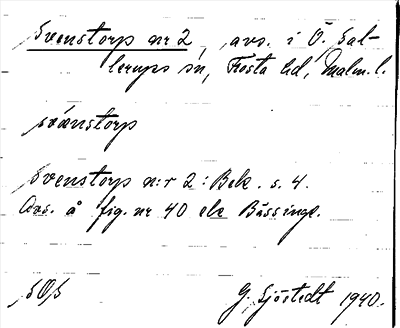 Svenstorp nr 2, avs. i Ö. Sal-
lerups sn, Frosta hd, Malm. l.
svänstorp
Svenstorp n:r 2 : Bek. s. 4.
Avs. å fig. nr 40 ek Bässinge.
SOS
G. Sjöstedt 1940.